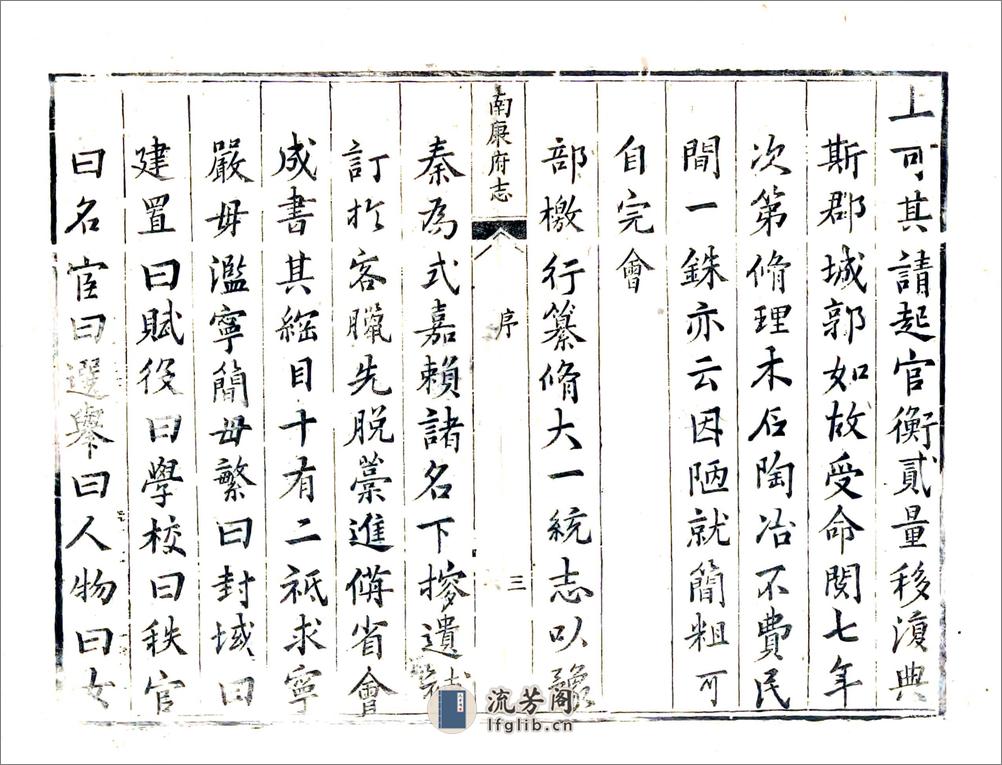 上可其請起官衡貳量移復典
斯郡城郭如故受命閱七年
次第脩理木石陶冶不費民
間一銖亦云因陋就簡粗可
自完會
部檄行纂脩大一統志以豫
南康府志
序
三
秦為式嘉賴諸名下摉遺
訂於客臘先脫藁進備省會
成書其綱目十有二祗求寧
嚴毋濫寧簡毋繁曰封域曰
建置曰賦役曰學校曰秩官
曰名宦曰選舉曰人物曰女
流芳阁
lfglib.cn